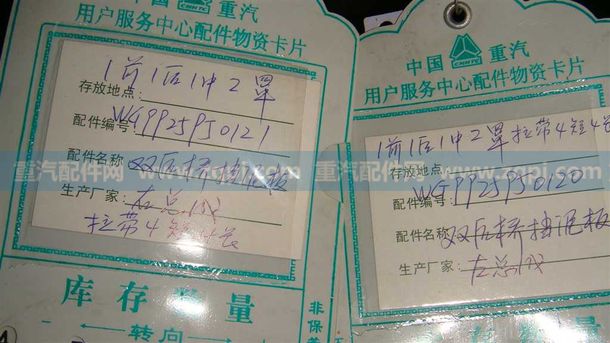 中国 CNHTC 重汽
用户服务中心配件物资卡片
1前1后1中2罩
存放地点:
配件编号: WG9925950121
配件名称 双后桥挡泥板
生产厂家: 左总成
拉带4短4长
库存数量
转向
非保养
中国 CNHTC 重汽
用户服务中心配件物资卡片
1前1后1中2罩拉带4短4长
存放地点
配件编号: WG9925950120
配件名称 双后桥挡泥板
生产厂家: 右总成
重汽配件网
重汽配件网 www.zqpj.com